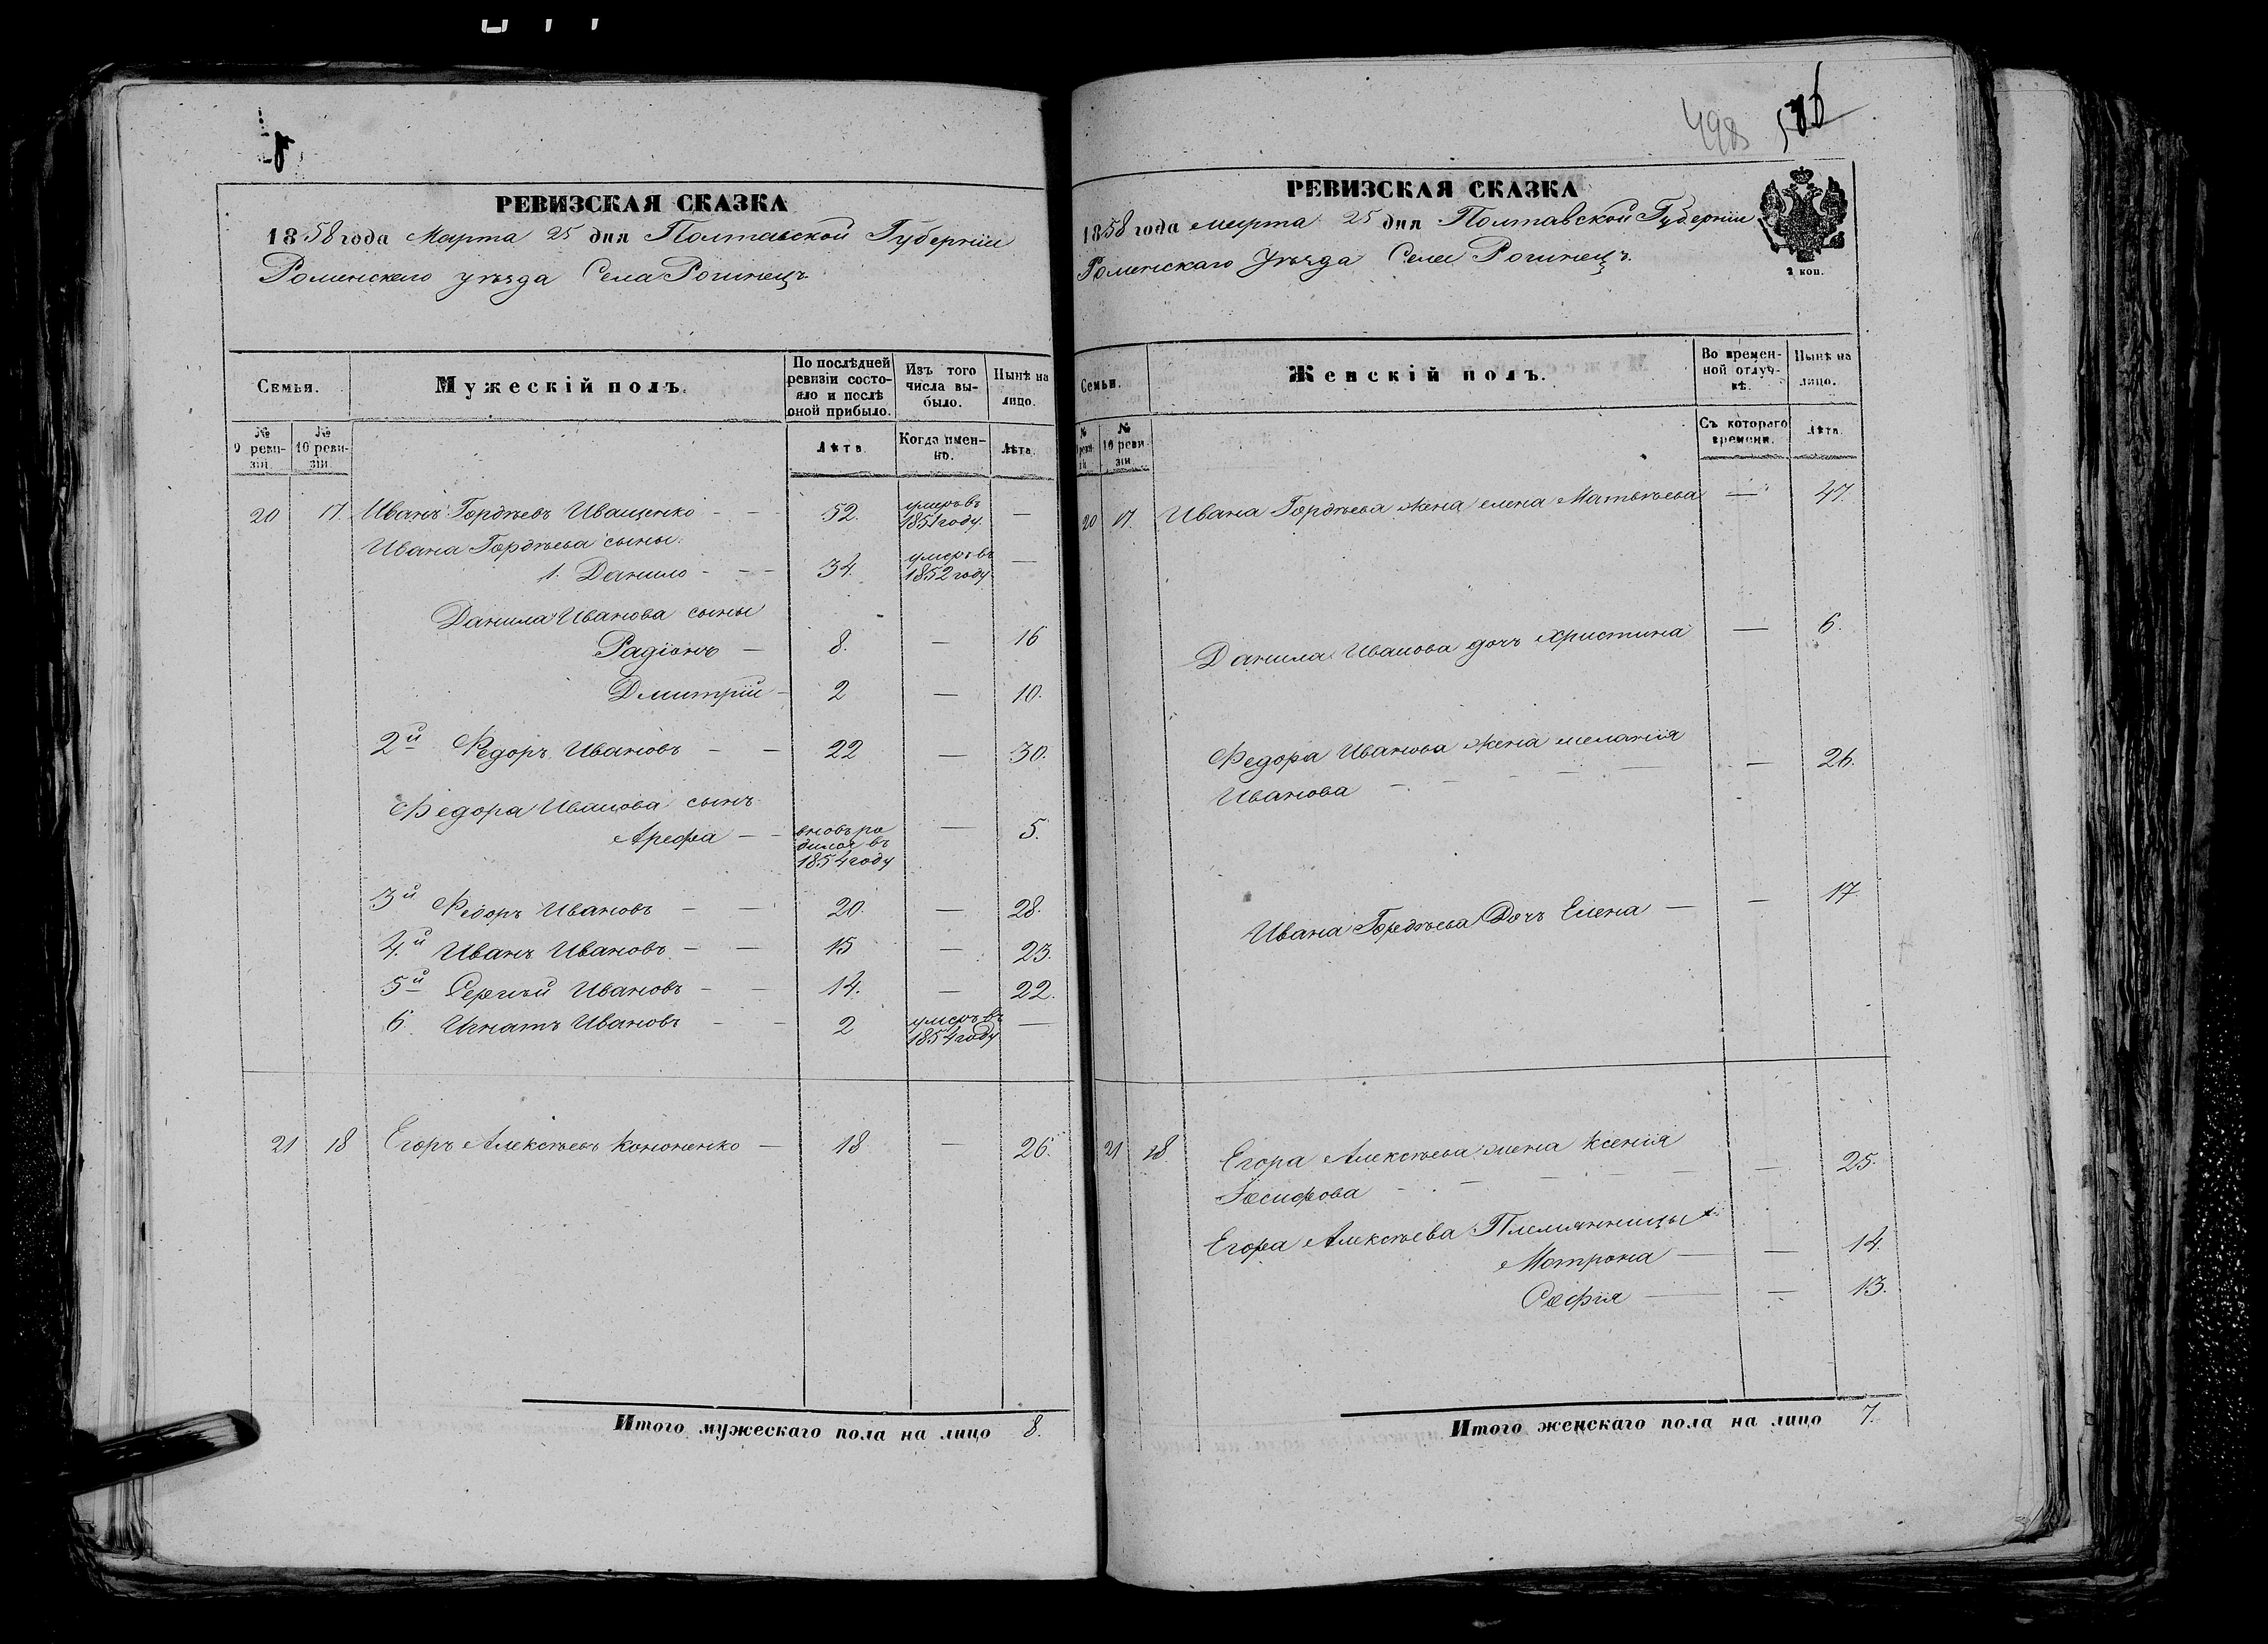 РЕВИЗСКАЯ СКАЗКА
1858 года Марта 25 дня Полтавской Губерніи
Роменскаго уѣзда Села Рогинецъ.
Семьи.
Мужескій полъ.
По послѣдней ревизіи состояло и послѣ оной прибыло.
Изъ того числа выбыло.
Нынѣ на лицо.
№ 9 ревизіи.
№ 10 ревизіи.
Лѣта.
Когда именно.
Лѣта.
20 17. Иванъ Гордѣевъ Иващенко - - 52. умеръ въ 1851 году —
Ивана Гордѣева сыны:
1. Данило - - - 34. умеръ въ 1852 году —
Данила Иванова сыны
Радіонъ — 8. — 16
Дмитрій - 2 — 10.
2й Федоръ Ивановъ - — 22 — 30.
Федора Иванова сынъ
Арефа — - вновь родился въ 1854 году — 5.
3й Федоръ Ивановъ - — 20. — 28.
4.й Иванъ Ивановъ - — 15 — 23.
5й Сергѣй Ивановъ - — 14. — 22.
6. Игнатъ Ивановъ - - 2 умеръ въ 1854 году —
21 18 Егоръ Алексѣевъ Кононенко — 18 — 26.
Итого мужескаго пола на лицо 8.
498
РЕВИЗСКАЯ СКАЗКА
1858 года марта 25 дня Полтавской Губерніи
Роменскаго Уѣзда Села Рогинецъ.
2 коп.
Семьи.
Женскій полъ.
Во временной отлучкѣ.
Нынѣ на лицо.
№ 9 ревизіи
№ 10 ревизіи
Съ котораго времени.
Лѣта.
20 17. Ивана Гордѣева жена елена Матвѣева — 47.
Данила Иванова дочь Христина — 6.
Федора Иванова жена меланія
Иванова - - - - — — 26.
Ивана Гордѣева Дочь Елена — — 17.
21 18 Егора Алексѣева жена Ксенія
Іосифова - - - — — — 25.
Егора Алексѣева Племянницы
Мотрона — — 14.
Софія — — 13.
Итого женскаго пола на лицо 7.